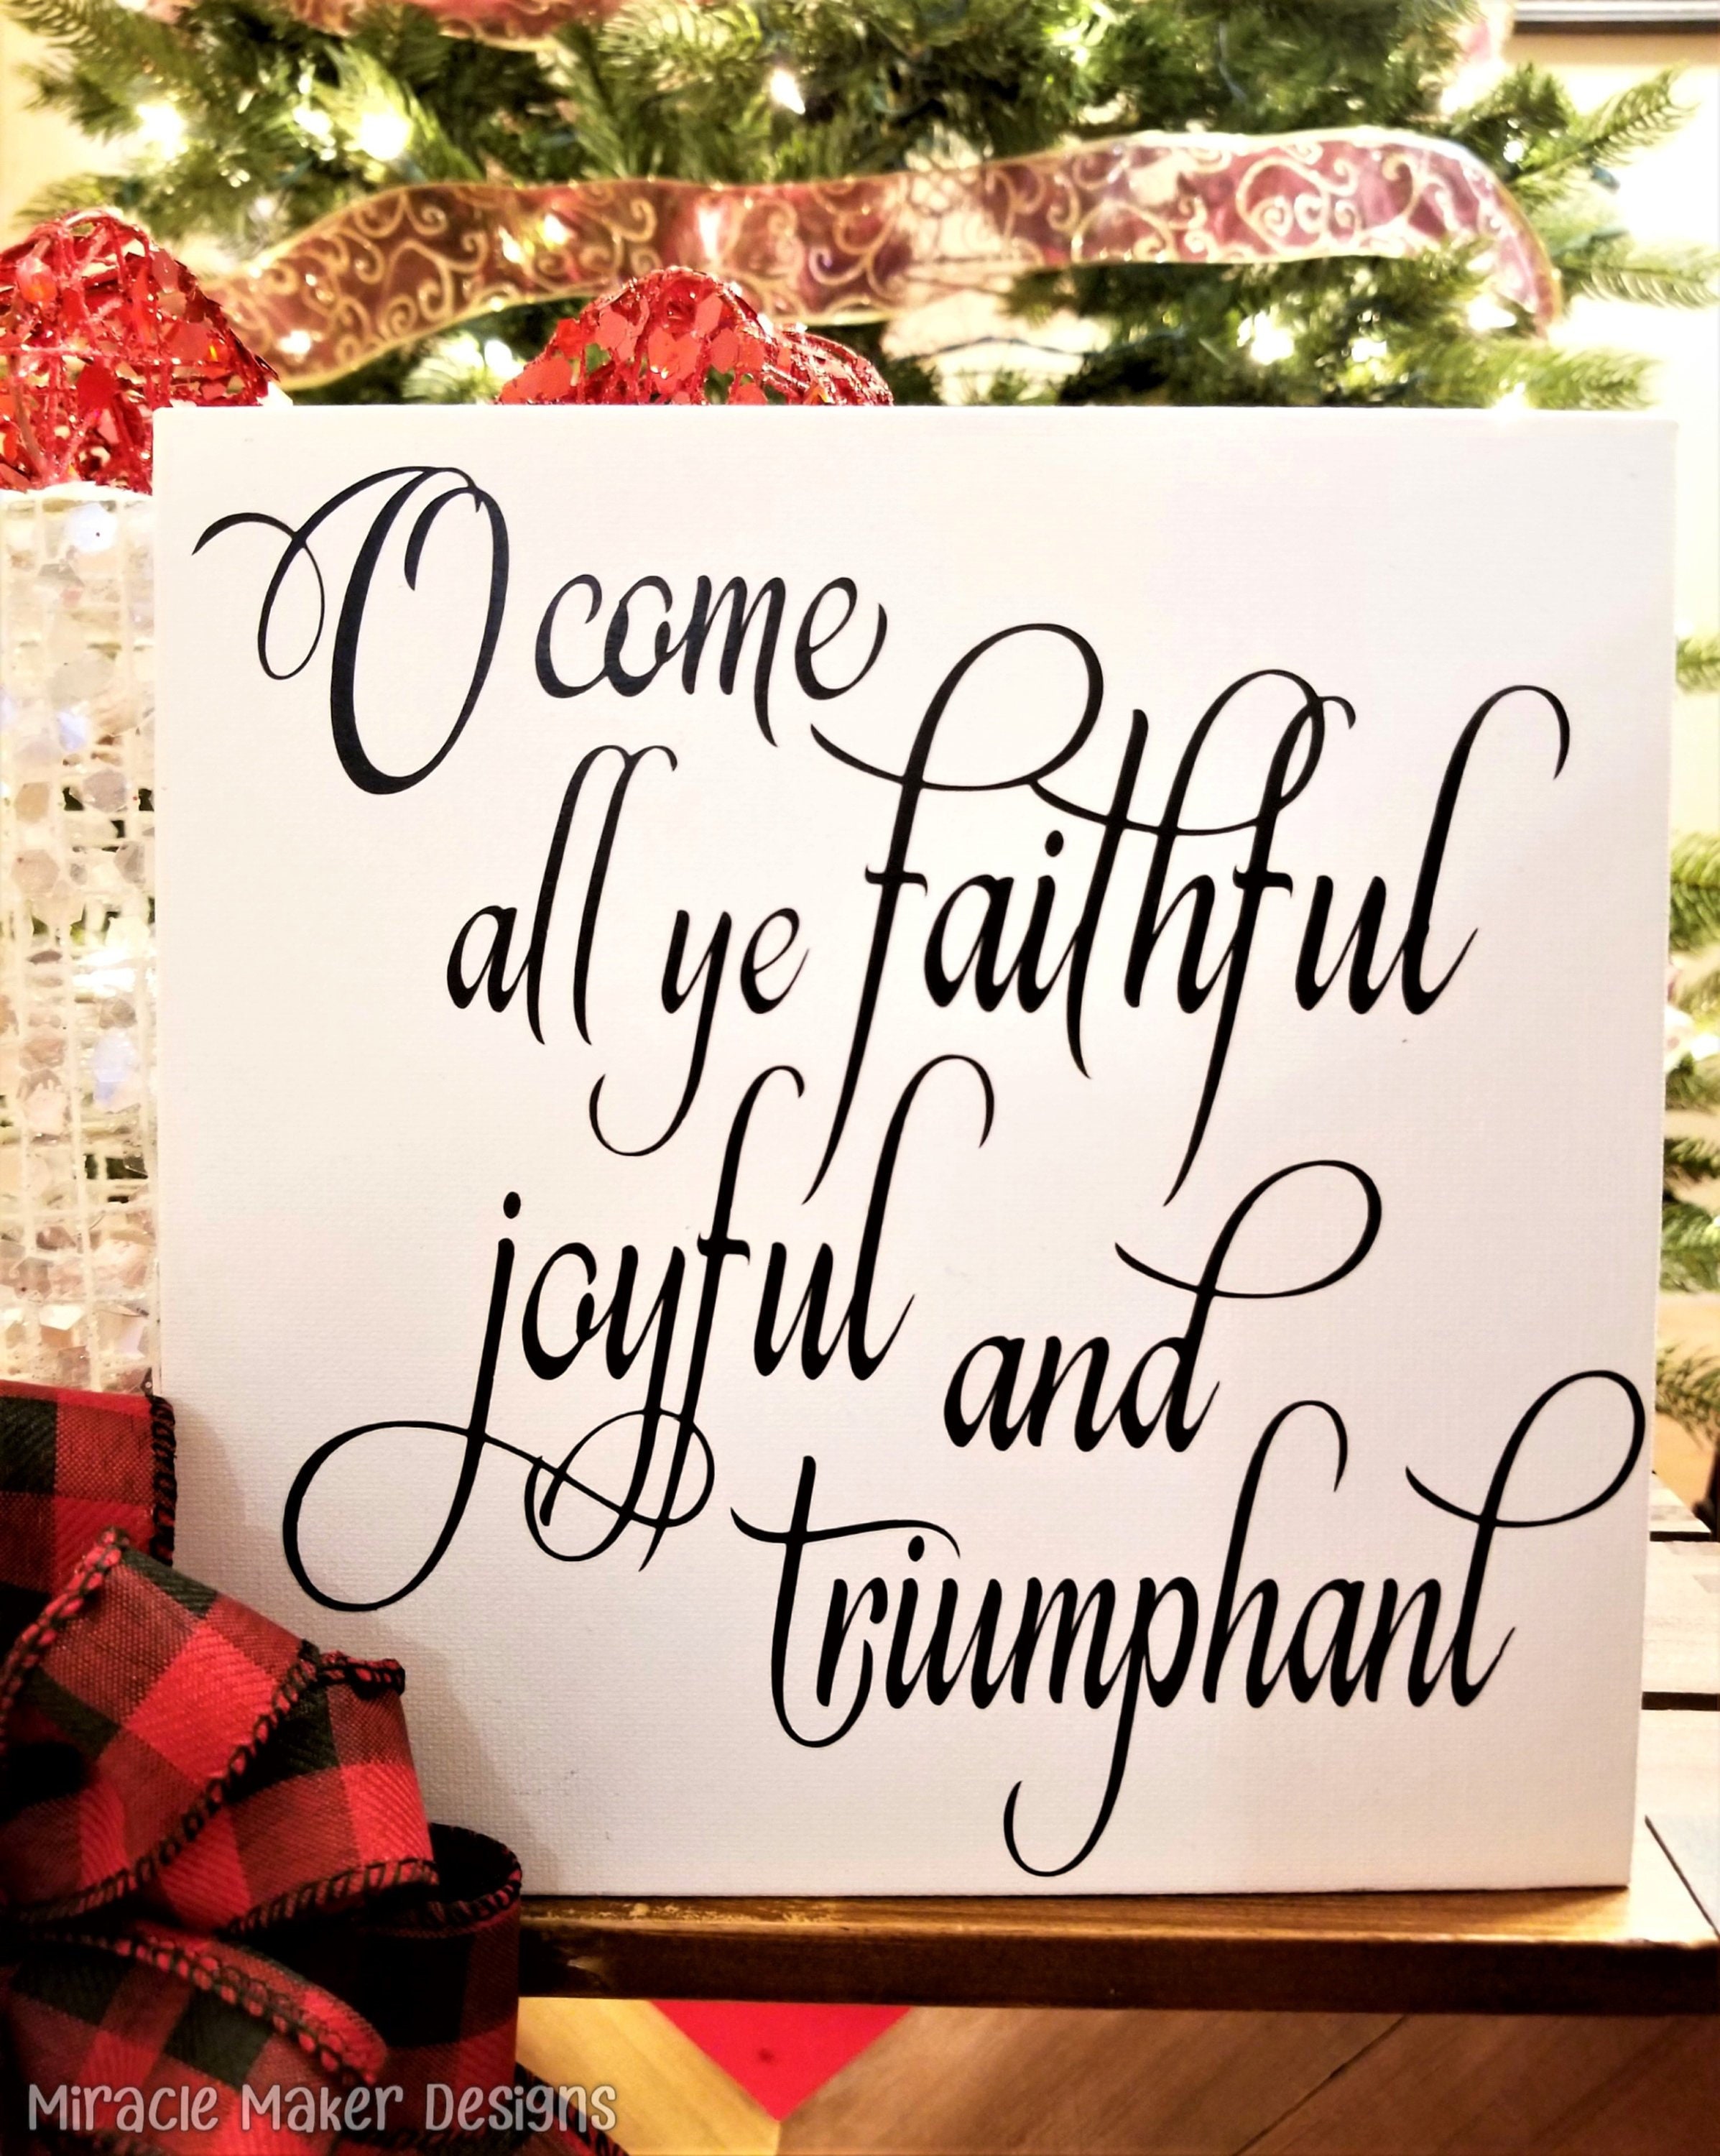 O come
all ye faithful
joyful and
triumphant
Miracle Maker Designs